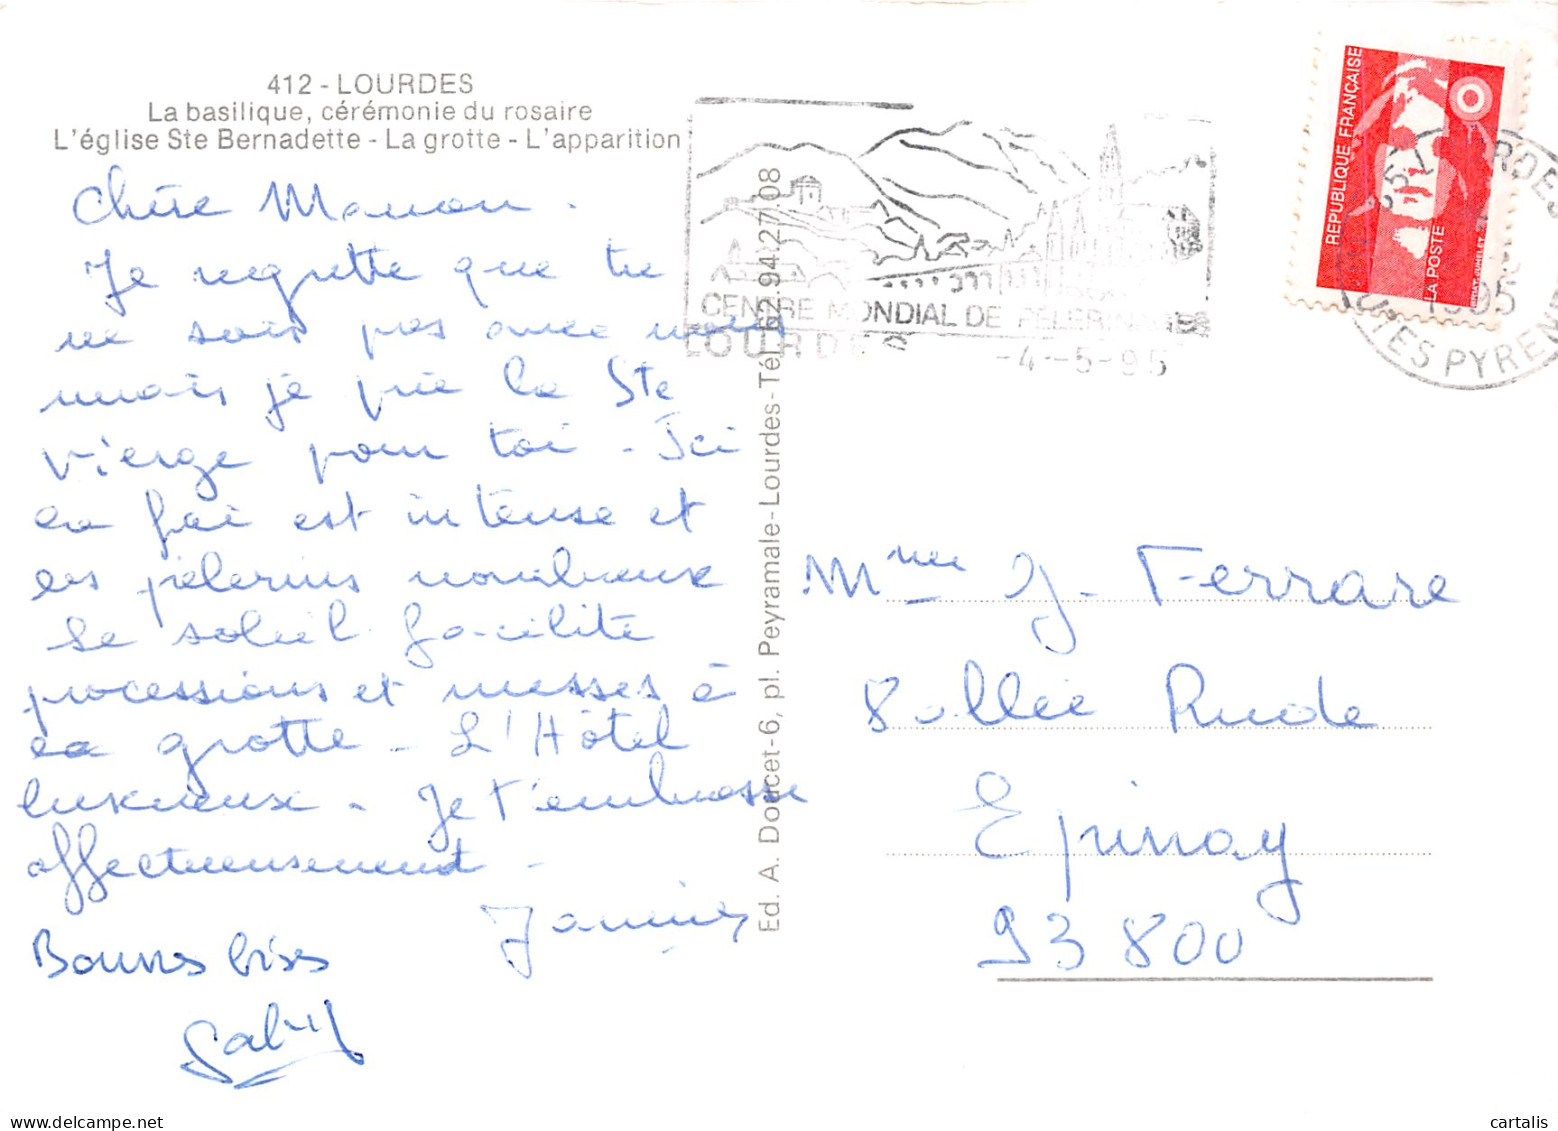 412 - LOURDES
La basilique, cérémonie du rosaire
L'église Ste Bernadette - La grotte - L'apparition
Chère Manon.
Je regrette que tu
ne sois pas avec nous
mais je prie la Ste
Vierge pour toi - Ici
la foi est intense et
les pèlerins nombreux
Le soleil facilite
processions et messes à
la grotte - L'Hôtel
luxueux - Je t'embrasse
affectueusement -
Janine
Bonnes bises
Gaby
Ed. A. Doucet-6, pl. Peyramale-Lourdes-Tél. 62.94.27.08
CENTRE MONDIAL DE PÈLERINAGES
LOURDES -4-5-95
RÉPUBLIQUE FRANÇAISE
LA POSTE
1995
PYRENE
Mme J. Ferrare
8 allée Rude
Epinay
93800
cartalis